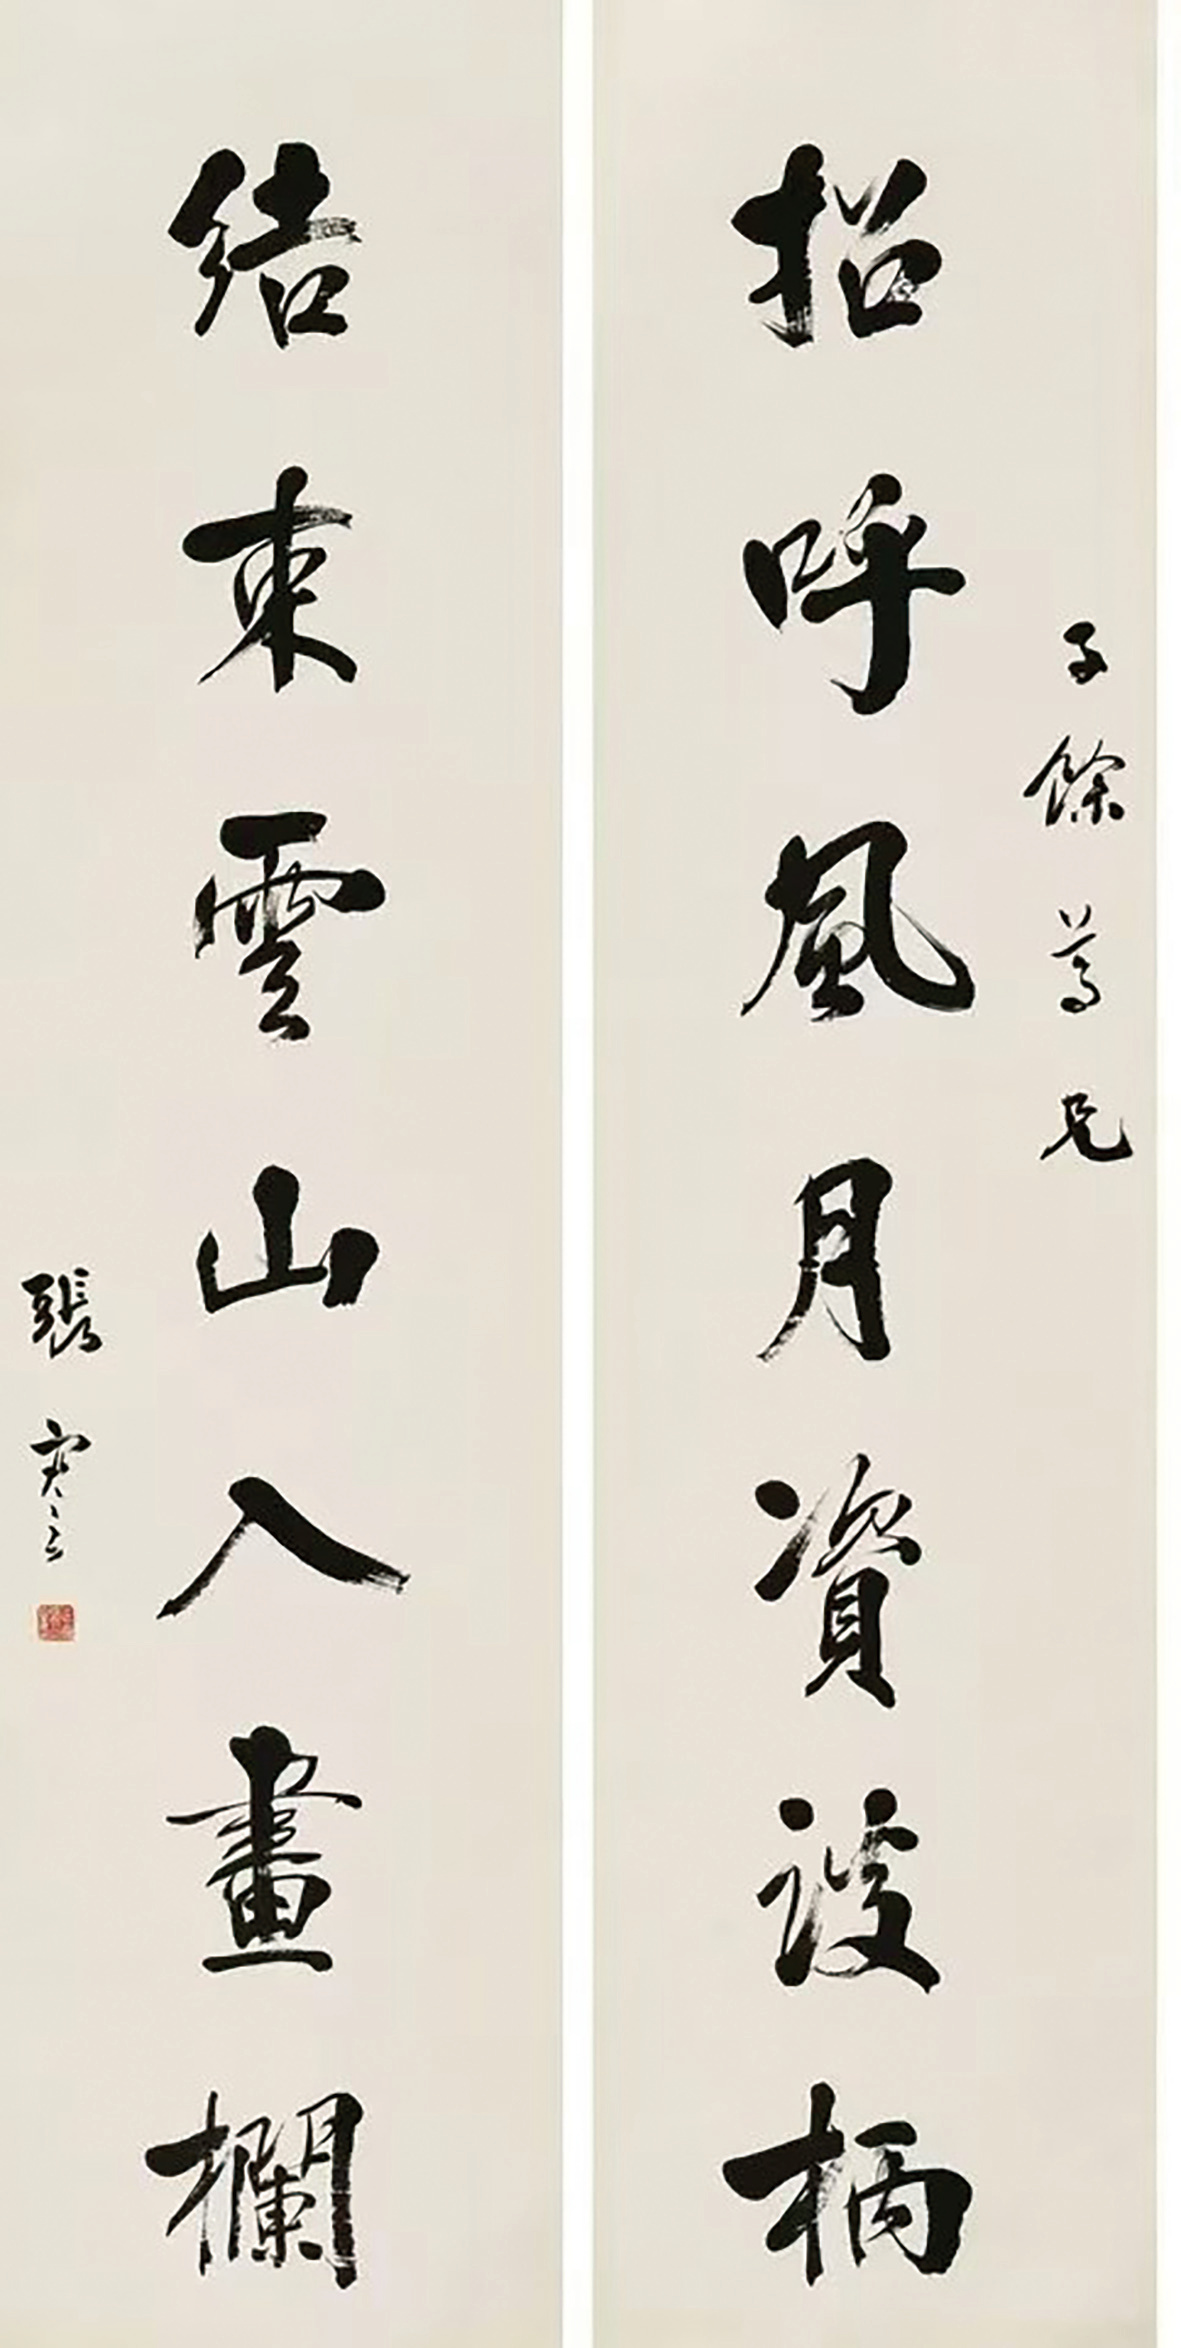 子餘尊兄
招呼風月資談柄
結束雲山入畫欄
張寒